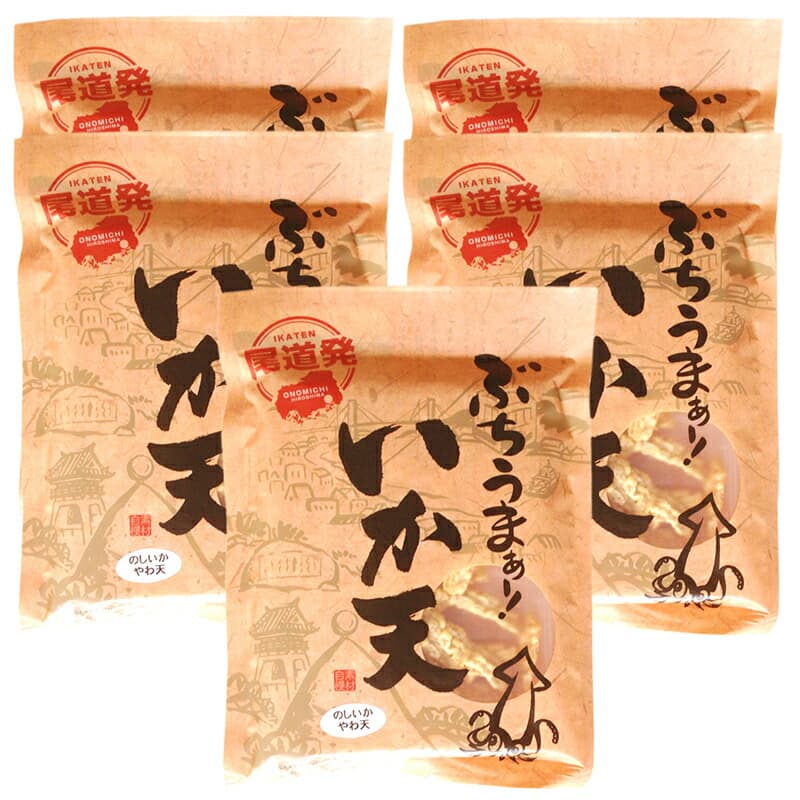 IKATEN
尾道発
ONOMICHI
HIROSHIMA
ぶち
IKATEN
尾道発
ONOMICHI
HIROSHIMA
ぶち
IKATEN
尾道発
ONOMICHI
HIROSHIMA
ぶち
いか天
素材
自慢
のしいか
やわ天
IKATEN
尾道発
ONOMICHI
HIROSHIMA
ぶちうまぁー!
いか天
IKATEN
尾道発
ONOMICHI
HIROSHIMA
ぶちうまぁー!
いか天
素材
自慢
のしいか
やわ天